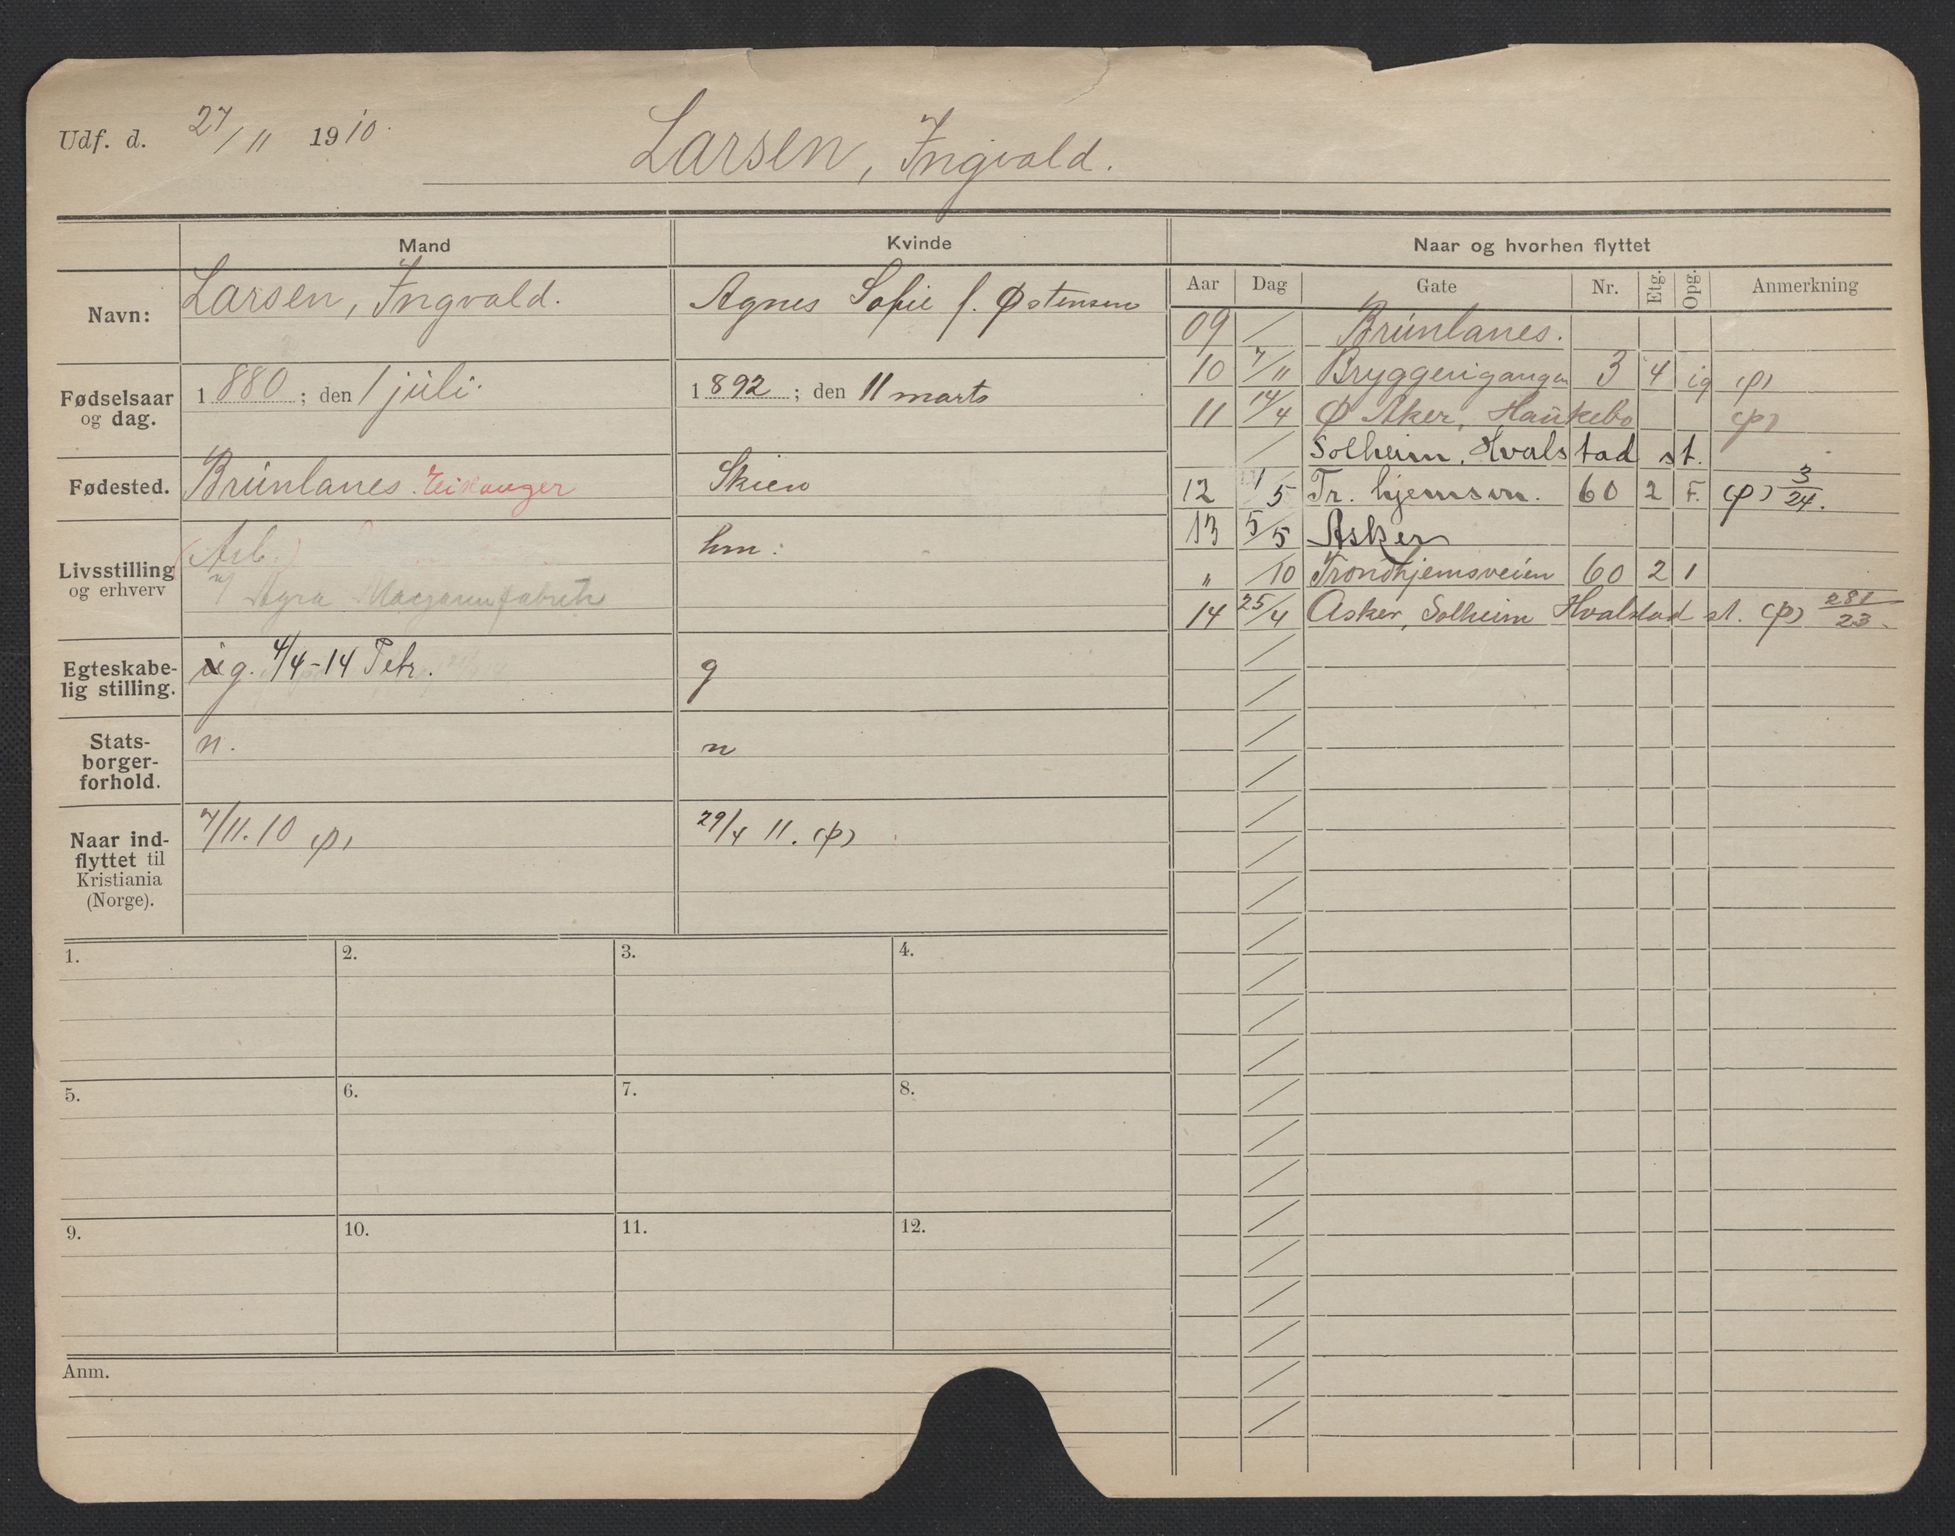 Udf. d. 27/11 1910.
Larsen, Ingvald.
Mand
Kvinde
Naar og hvorhen flyttet
Navn:
Larsen, Ingvald.
Agnes Sofie f. Østensen
Fødselsaar og dag.
1880; den 1 juli.
1892; den 11 marts
Fødested.
Brunlanes.
Skien
Livsstilling og erhverv
(Arb.)
v/ Agra Margarinfabrik
hm:
Egteskabelig stilling.
ug. 4/4-14 Petr.
g
Statsborgerforhold.
n.
n
Naar indflyttet til Kristiania (Norge).
7/11.10 (p)
29/4 11. (p)
Aar Dag Gate Nr. Etg. Opg. Anmerkning
09 / Brunlanes.
10 7/11 Bryggerigangen 3 4 ig (p)
11 14/4 Ø Aker, Haukebo (p)
/ Solheim, Hvalstad st.
12 /5 Tr. hjemsvn. 60 2 F. (p) 3/24.
13 5/5 Asker
" /10 Trondhjemsveien 60 2 1
14 25/4 Asker, Solheim Hvalstad st. (p) 281/23.
1. 2. 3. 4.
5. 6. 7. 8.
9. 10. 11. 12.
Anm.